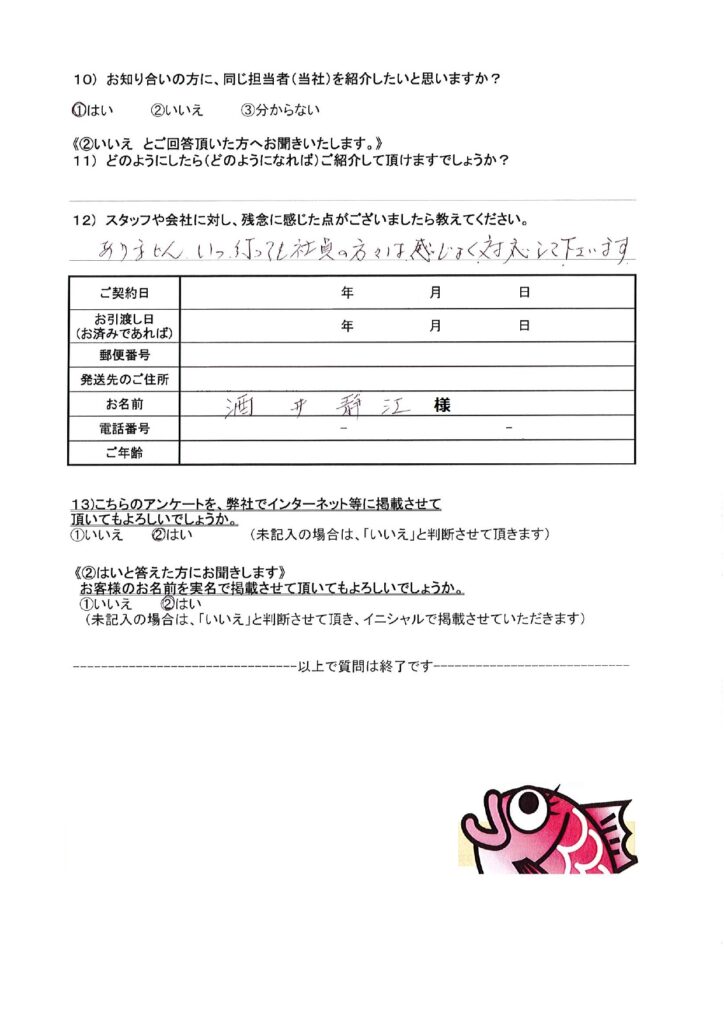 10） お知り合いの方に、同じ担当者（当社）を紹介したいと思いますか？
①はい　②いいえ　③分からない
《②いいえ　とご回答頂いた方へお聞きいたします。》
11） どのようにしたら（どのようになれば）ご紹介して頂けますでしょうか？
12） スタッフや会社に対し、残念に感じた点がございましたら教えてください。
ありません いつ行っても社員の方々は感じよく対応して下さいます
ご契約日　年　月　日
お引渡し日
（お済みであれば）　年　月　日
郵便番号
発送先のご住所
お名前　酒井静江　様
電話番号　－　－
ご年齢
13)こちらのアンケートを、弊社でインターネット等に掲載させて
頂いてもよろしいでしょうか。
①いいえ　②はい　（未記入の場合は、「いいえ」と判断させて頂きます）
《②はいと答えた方にお聞きします》
お客様のお名前を実名で掲載させて頂いてもよろしいでしょうか。
①いいえ　②はい
（未記入の場合は、「いいえ」と判断させて頂き、イニシャルで掲載させていただきます）
--------------------------------以上で質問は終了です----------------------------